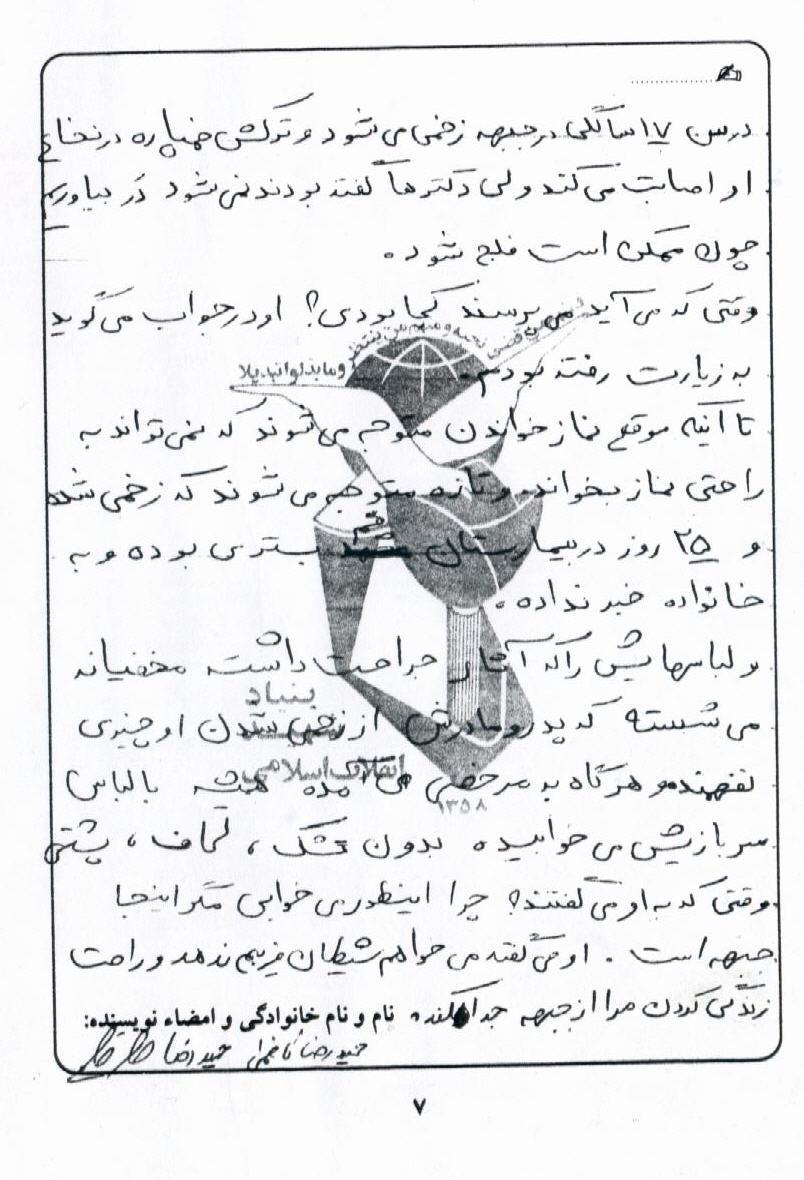 درسن ۱۷ سالگی در جبهه زخمی می شود و ترکش خمپاره در نخاع
او اصابت می کند ولی دکترها گفته بودند نمی شود در بیاوریم
چون ممکن است فلج شود.
وقتی که می آید می پرسند کجا بودی؟ او در جواب می گوید
به زیارت رفته بودم.
تا اینکه موقع نماز خواندن متوجه می شوند که نمی تواند به
راحتی نماز بخواند و تازه متوجه می شوند که زخمی شده
و ۲۵ روز در بیمارستان قم بستری بوده و به
خانواده خبر نداده.
و لباسهایش را که آثار جراحت داشته مخفیانه
می شسته که پدر و مادرش از زخمی شدن او چیزی
نفهمند و هرگاه به مرخصی می آمده همیشه با لباس
سربازیش می خوابیده بدون تشک، لحاف، پشتی
وقتی که به او می گفتند؟ چرا اینطور می خوابی مگر اینجا
جبهه است. او می گفت می خواهم شیطان فریبم ندهد و راحت
زندگی کردن مرا از جبهه جدا نکند.
نام و نام خانوادگی و امضاء نویسنده:
حمیدرضا حمیدرضا
بنیاد
انقلاب اسلامی
۱۳۵۸
۷